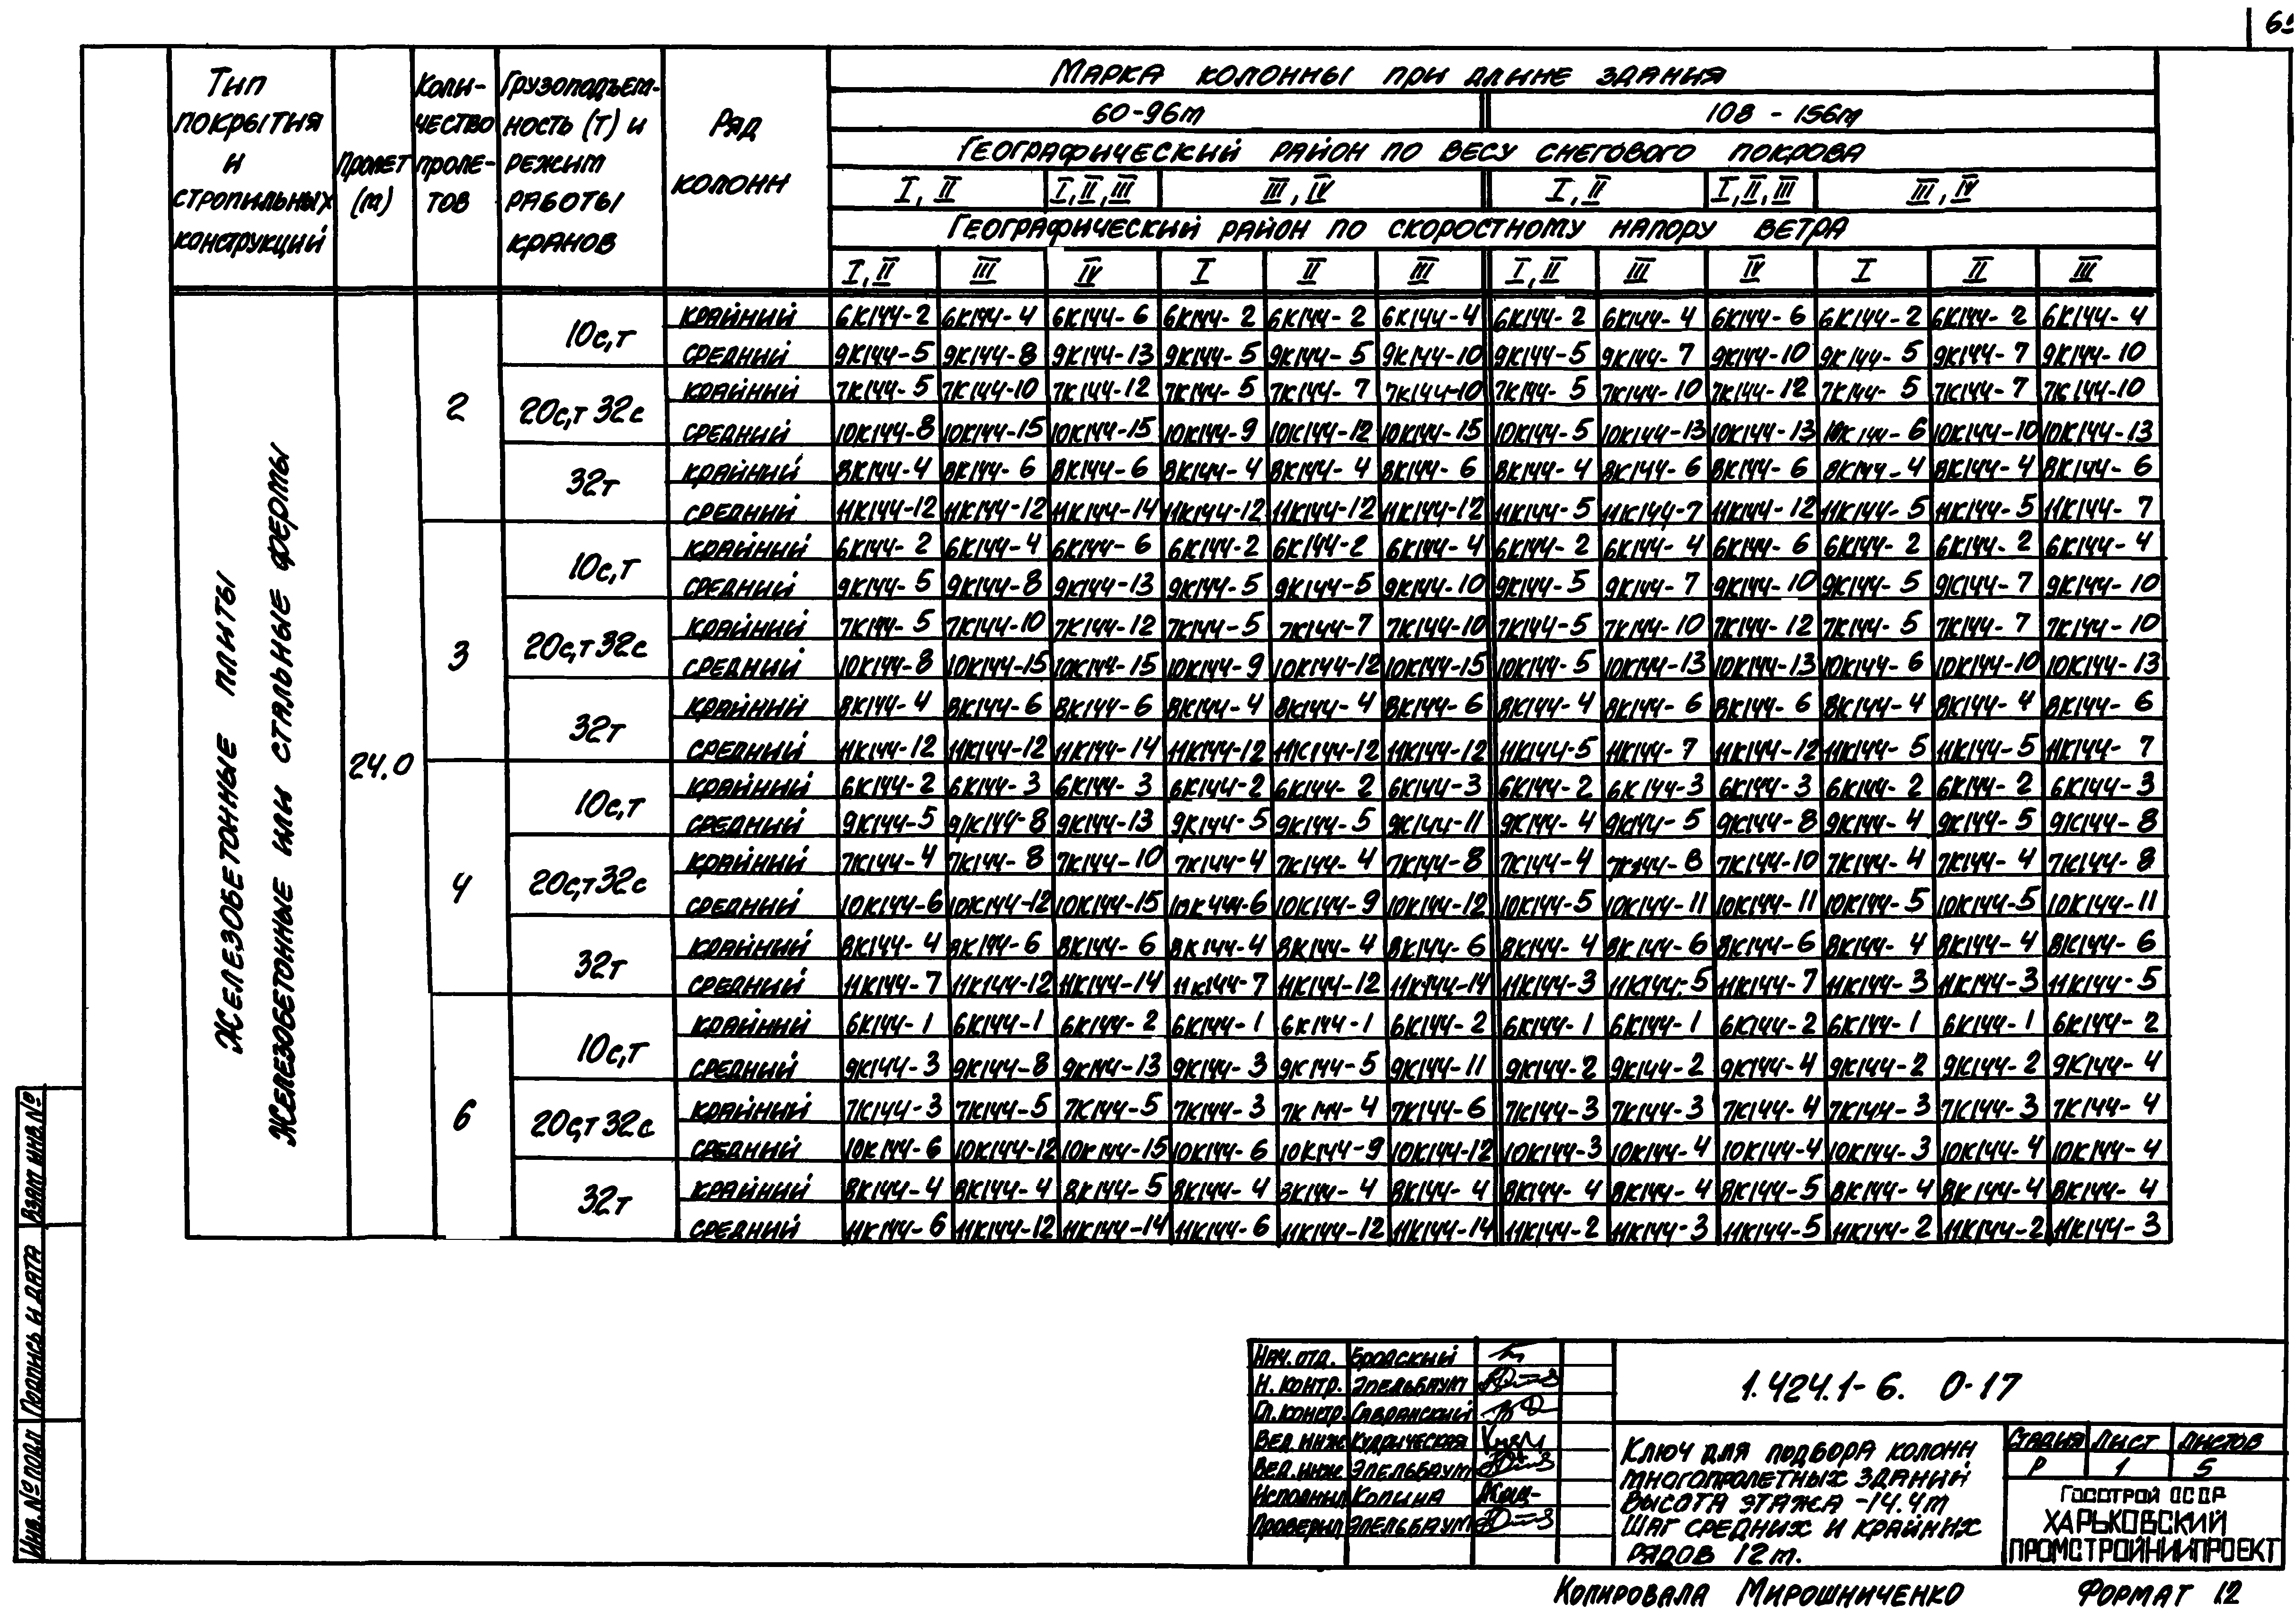 61
Тип покрытия и стропильных конструкций
Пролет (м)
Количество пролетов
Грузоподъемность (т) и режим работы кранов
Ряд колонн
Марка колонны при длине здания
60-96м 108-156м
Географический район по весу снегового покрова
I, II I, II, III III, IV I, II I, II, III III, IV
Географический район по скоростному напору ветра
I, II III IV I II III I, II III IV I II III
Железобетонные плиты
Железобетонные или стальные фермы
24.0
2
10с,т
крайний 6К144-2 6К144-4 6К144-6 6К144-2 6К144-2 6К144-4 6К144-2 6К144-4 6К144-6 6К144-2 6К144-2 6К144-4
средний 9К144-5 9К144-8 9К144-13 9К144-5 9К144-5 9К144-10 9К144-5 9К144-7 9К144-10 9К144-5 9К144-7 9К144-10
20с,т 32с
крайний 7К144-5 7К144-10 7К144-12 7К144-5 7К144-7 7К144-10 7К144-5 7К144-10 7К144-12 7К144-5 7К144-7 7К144-10
средний 10К144-8 10К144-15 10К144-15 10К144-9 10К144-12 10К144-15 10К144-5 10К144-13 10К144-13 10К144-6 10К144-10 10К144-13
32т
крайний 8К144-4 8К144-6 8К144-6 8К144-4 8К144-4 8К144-6 8К144-4 8К144-6 8К144-6 8К144-4 8К144-4 8К144-6
средний 11К144-12 11К144-12 11К144-14 11К144-12 11К144-12 11К144-12 11К144-5 11К144-7 11К144-12 11К144-5 11К144-5 11К144-7
3
10с,т
крайний 6К144-2 6К144-4 6К144-6 6К144-2 6К144-2 6К144-4 6К144-2 6К144-4 6К144-6 6К144-2 6К144-2 6К144-4
средний 9К144-5 9К144-8 9К144-13 9К144-5 9К144-5 9К144-10 9К144-5 9К144-7 9К144-10 9К144-5 9К144-7 9К144-10
20с,т 32с
крайний 7К144-5 7К144-10 7К144-12 7К144-5 7К144-7 7К144-10 7К144-5 7К144-10 7К144-12 7К144-5 7К144-7 7К144-10
средний 10К144-8 10К144-15 10К144-15 10К144-9 10К144-12 10К144-15 10К144-5 10К144-13 10К144-13 10К144-6 10К144-10 10К144-13
32т
крайний 8К144-4 8К144-6 8К144-6 8К144-4 8К144-4 8К144-6 8К144-4 8К144-6 8К144-6 8К144-4 8К144-4 8К144-6
средний 11К144-12 11К144-12 11К144-14 11К144-12 11К144-12 11К144-12 11К144-5 11К144-7 11К144-12 11К144-5 11К144-5 11К144-7
4
10с,т
крайний 6К144-2 6К144-3 6К144-3 6К144-2 6К144-2 6К144-3 6К144-2 6К144-3 6К144-3 6К144-2 6К144-2 6К144-3
средний 9К144-5 9К144-8 9К144-13 9К144-5 9К144-5 9К144-11 9К144-4 9К144-5 9К144-8 9К144-4 9К144-5 9К144-8
20с,т 32с
крайний 7К144-4 7К144-8 7К144-10 7К144-4 7К144-4 7К144-8 7К144-4 7К144-8 7К144-10 7К144-4 7К144-4 7К144-8
средний 10К144-6 10К144-12 10К144-15 10К144-6 10К144-9 10К144-12 10К144-5 10К144-11 10К144-11 10К144-5 10К144-5 10К144-11
32т
крайний 8К144-4 8К144-6 8К144-6 8К144-4 8К144-4 8К144-6 8К144-4 8К144-6 8К144-6 8К144-4 8К144-4 8К144-6
средний 11К144-7 11К144-12 11К144-14 11К144-7 11К144-12 11К144-14 11К144-3 11К144-5 11К144-7 11К144-3 11К144-3 11К144-5
6
10с,т
крайний 6К144-1 6К144-1 6К144-2 6К144-1 6К144-1 6К144-2 6К144-1 6К144-1 6К144-2 6К144-1 6К144-1 6К144-2
средний 9К144-3 9К144-8 9К144-13 9К144-3 9К144-5 9К144-11 9К144-2 9К144-2 9К144-4 9К144-2 9К144-2 9К144-4
20с,т 32с
крайний 7К144-3 7К144-5 7К144-5 7К144-3 7К144-4 7К144-6 7К144-3 7К144-3 7К144-4 7К144-3 7К144-3 7К144-4
средний 10К144-6 10К144-12 10К144-15 10К144-6 10К144-9 10К144-12 10К144-3 10К144-4 10К144-4 10К144-3 10К144-4 10К144-4
32т
крайний 8К144-4 8К144-4 8К144-5 8К144-4 8К144-4 8К144-4 8К144-4 8К144-4 8К144-5 8К144-4 8К144-4 8К144-4
средний 11К144-6 11К144-12 11К144-14 11К144-6 11К144-12 11К144-14 11К144-2 11К144-3 11К144-5 11К144-2 11К144-2 11К144-3
Инв. № подл Подпись и дата Взам инв. №
Нач. отд. Бродский
Н. контр. Эпельбаум
Гл. констр. Савранский
Вед. инж. Кудрическая
Вед. инж Эпельбаум
Исполнил Копина
Проверил Эпельбаум
1.424.1-6. 0-17
Ключ для подбора колонн
многопролетных зданий
Высота этажа -14.4м
Шаг средних и крайних
рядов 12м.
Стадия Лист Листов
Р 1 5
Госстрой СССР
ХАРЬКОВСКИЙ
ПРОМСТРОЙНИИПРОЕКТ
Копировала Мирошниченко Формат 12